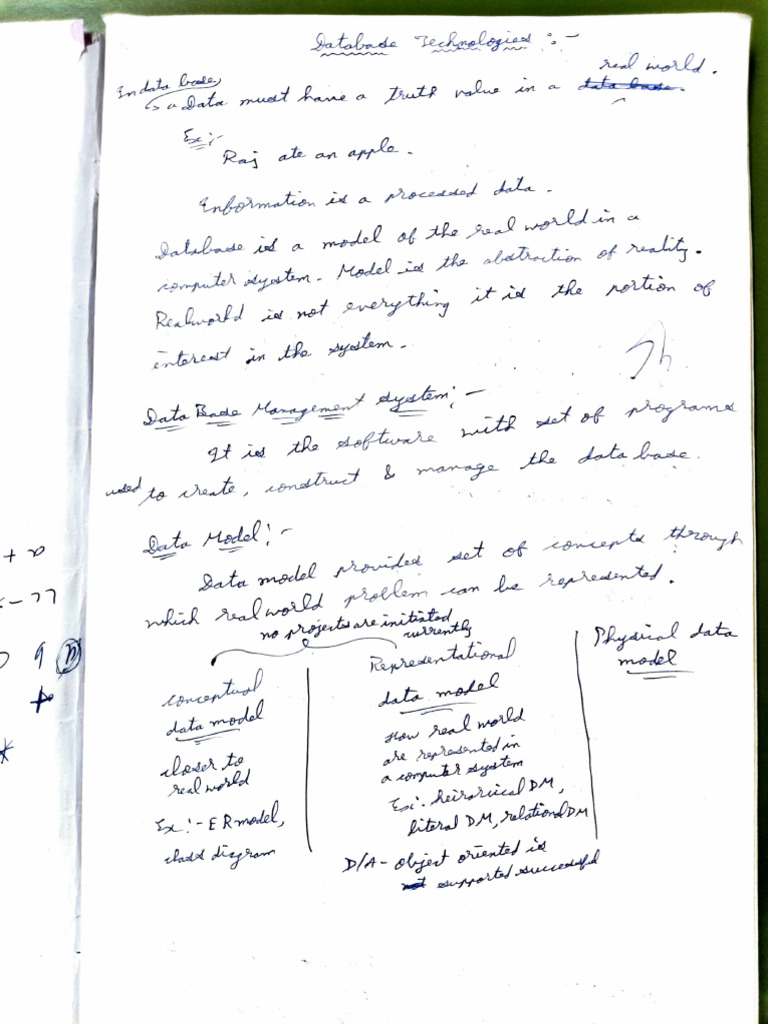 Database Technologies :-
In data base,
real world.
→ a Data must have a truth value in a data base.
Ex:-
Raj ate an apple.
Information is a processed data.
Database is a model of the real world in a
computer system. Model is the abstraction of reality.
Realworld is not everything it is the portion of
interest in the system.
Data Base Management system:-
It is the software with set of programs
used to create, construct & manage the data base.
Data Model:-
Data model provides set of concepts through
which real world problem can be represented.
no projects are initiated
currently
conceptual
data model
closer to
real world
Ex:- ER model,
class diagram
Representational
data model
How real world
are represented in
a computer system
Ex:- heirarical DM,
literal DM, relational DM
D/A - object oriented is
not supported successful
Physical data
model